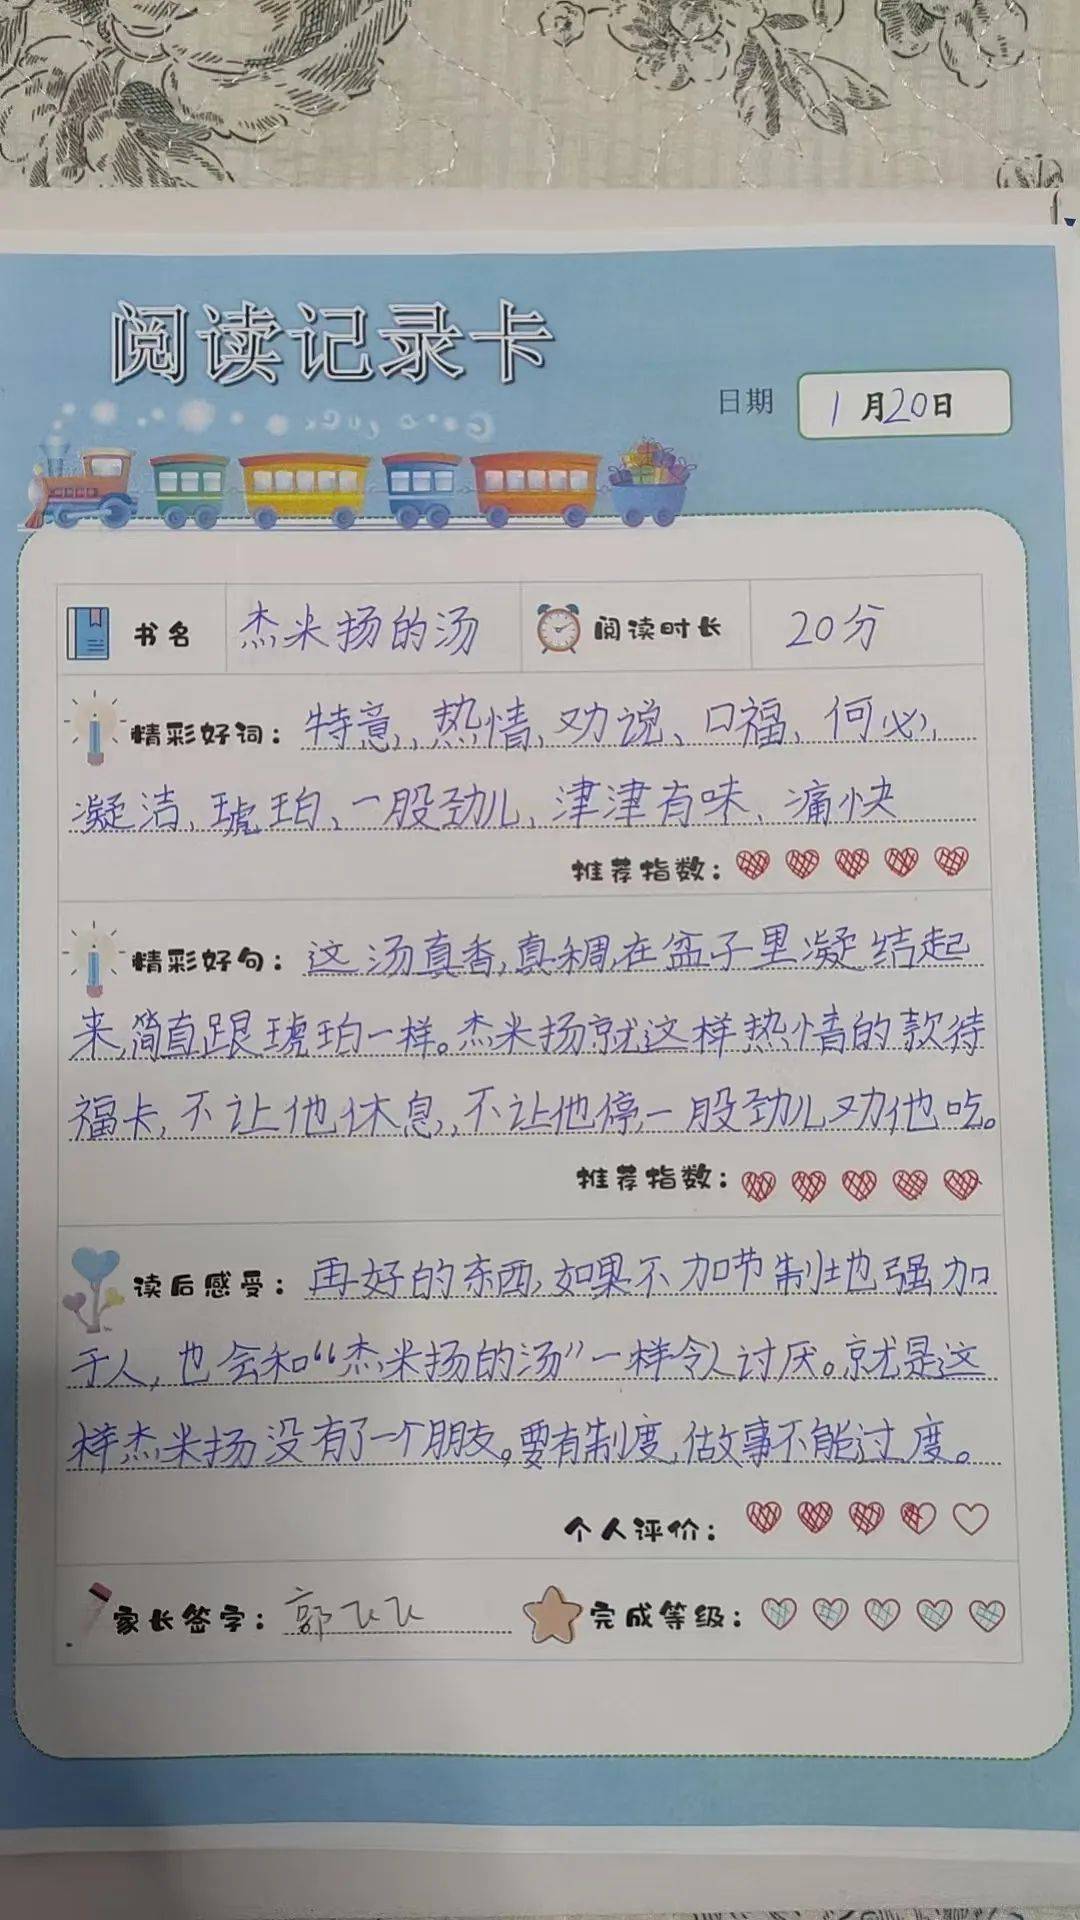 阅读记录卡
日期 1月20日
书名 杰米扬的汤 阅读时长 20分
精彩好词：特意,热情、劝说、口福、何必,
凝洁、琥珀、一股劲儿、津津有味、痛快
推荐指数：
精彩好句：这汤真香,真稠,在盆子里凝结起
来,简直跟琥珀一样。杰米扬就这样热情的款待
福卡,不让他休息,不让他停,一股劲儿劝他吃。
推荐指数：
读后感受：再好的东西,如果不加节制地强加
于人,也会和“杰米扬的汤”一样令人讨厌。就是这
样杰米扬没有了一个朋友。要有制度,做故事不能过度。
个人评价：
家长签字：郭飞飞 完成等级：